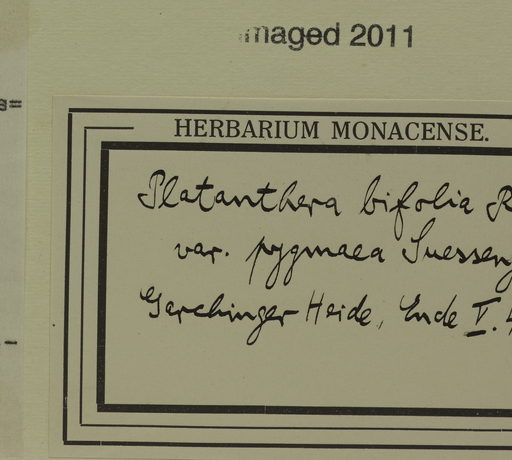 imaged 2011
s=
HERBARIUM MONACENSE.
Platanthera bifolia R
var. pygmaea Suesseng
Garchinger Heide, Ende V. 4
-